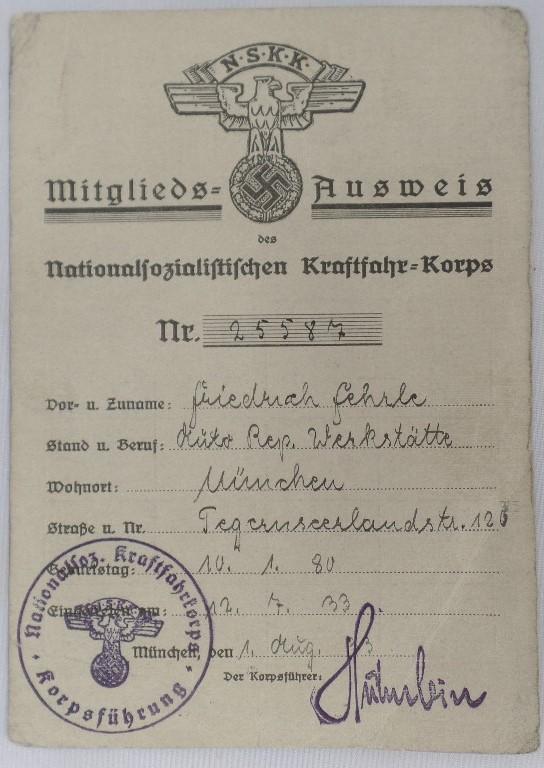 N·S·K·K·
Mitglieds= Ausweis
des
Nationalsozialistischen Kraftfahr=Korps
Nr. 25587
Vor- u. Zuname: Friedrich Fehrle
Stand u. Beruf: Auto Rep. Werkstätte
Wohnort: München
Straße u. Nr. Tegernseerlandstr. 126
Geburtstag: 10. 1. 80
Eingetreten am: 12. 7. 33.
München, den 1. Aug. 33
Der Korpsführer: Hühnlein
Nationalsoz. Kraftfahrkorps
N·S·K·K
· Korpsführung ·